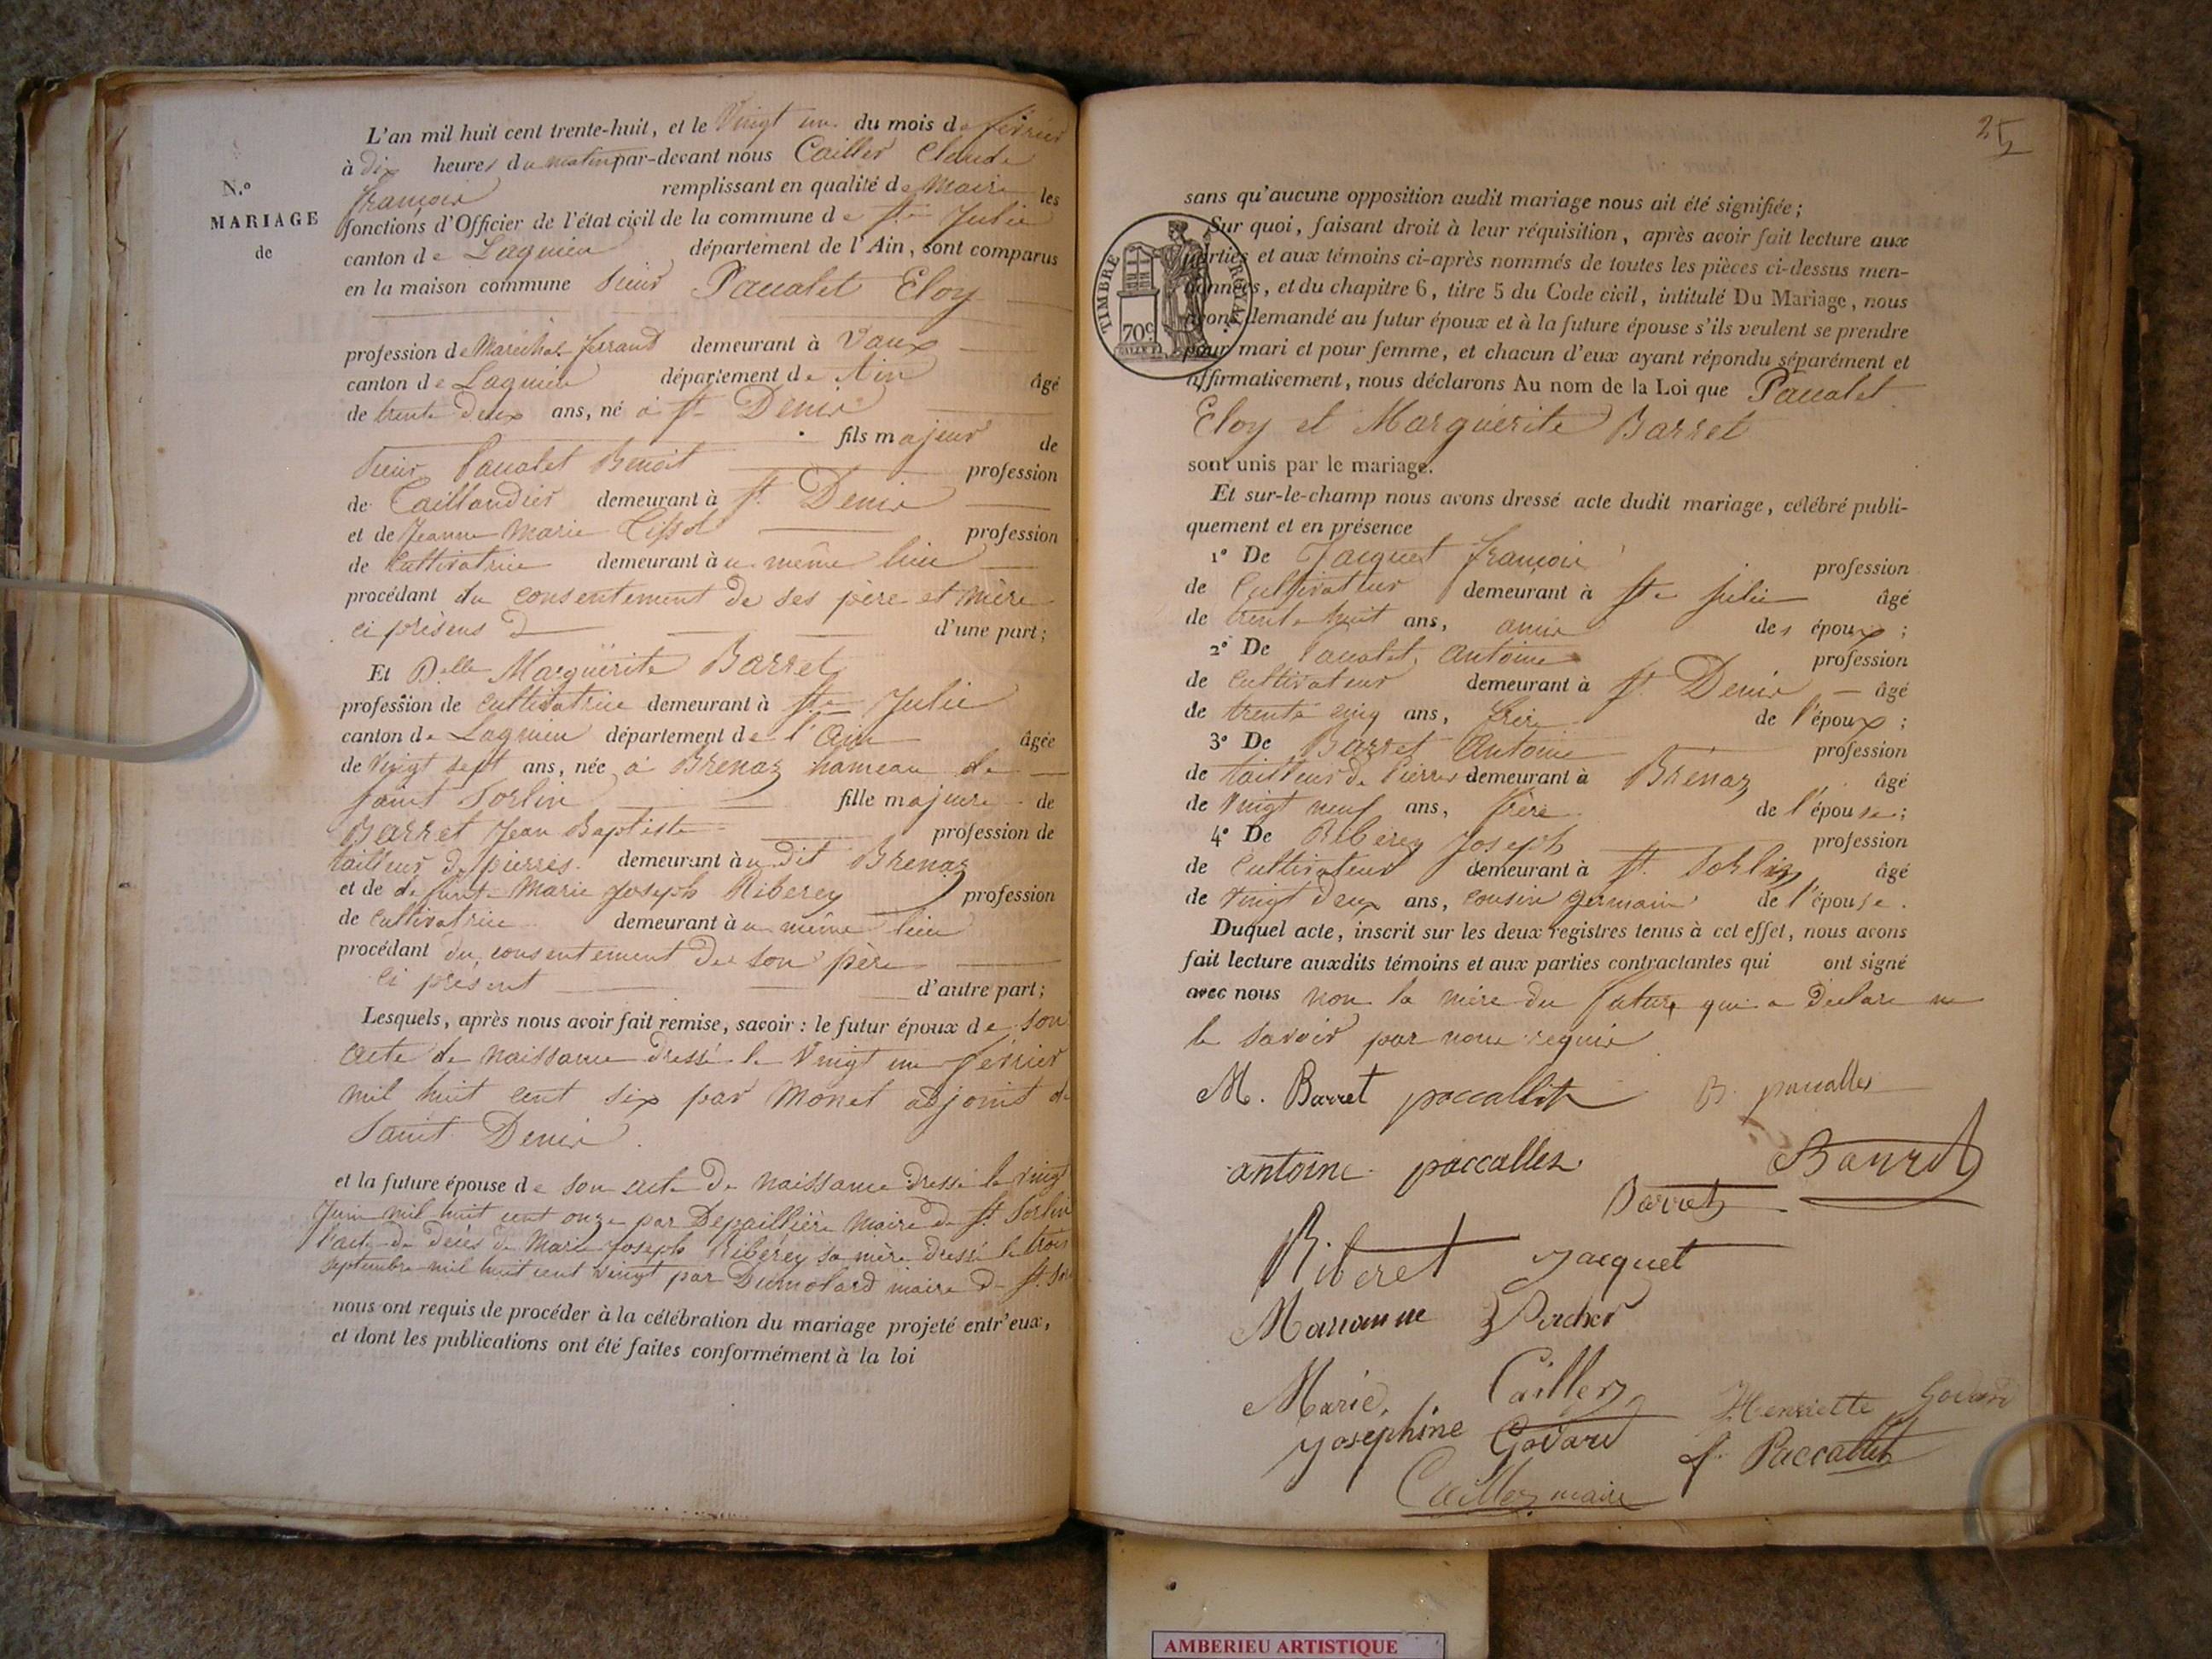 L'an mil huit cent trente-huit, et le Vingt un du mois de février
à dix heures du matin par-devant nous Cailler Claude
françois remplissant en qualité de Maire les
N.º
MARIAGE
de
fonctions d'Officier de l'état civil de la commune de Ste Julie
canton de Lagnieu département de l'Ain, sont comparus
en la maison commune Sieur Paualet Eloy
profession de Maréchal ferrand demeurant à Vaux
canton de Lagnieu département de Ain âgé
de trente deux ans, né à St Denis
fils majeur de
Sieur Paualet Benoit profession
de Taillandier demeurant à St. Denis
et de Jeanne Marie profession
de Cultivatrice demeurant au même lieu
procédant du consentement de ses père et mère
ci présens d'une part;
Et Delle Marguerite Barret
profession de cultivatrice demeurant à Ste Julie
canton de Lagnieu département de l'Ain âgée
de Vingt sept ans, née à Brenaz hameau de
Saint Sorlin fille majeure de
Barret Jean Baptiste profession de
tailleur de pierres demeurant au dit Brenaz
et de defunte Marie Joseph Riberey profession
de cultivatrice demeurant au même lieu
procédant du consentement de son père
ci présent d'autre part;
Lesquels, après nous avoir fait remise, savoir: le futur époux de son
acte de naissance dressé le Vingt un février
mil huit cent six par Monet adjoint de
Saint Denis.
et la future épouse de son acte de naissance dressé le vingt
Juin mil huit cent onze par Depaillière maire de St. Sorlin
l'acte de décès de Marie Joseph Riberey sa mère dressé le trois
septembre mil huit cent vingt par Dumolard maire de St. Sor
nous ont requis de procéder à la célébration du mariage projeté entr'eux,
et dont les publications ont été faites conformément à la loi
25
sans qu'aucune opposition audit mariage nous ait été signifiée;
Sur quoi, faisant droit à leur réquisition, après avoir fait lecture aux
parties et aux témoins ci-après nommés de toutes les pièces ci-dessus men-
tionnées, et du chapitre 6, titre 5 du Code civil, intitulé Du Mariage, nous
avons demandé au futur époux et à la future épouse s'ils veulent se prendre
pour mari et pour femme, et chacun d'eux ayant répondu séparément et
affirmativement, nous déclarons Au nom de la Loi que Paualet
TIMBRE ROYAL
70c.
Eloy et Marguerite Barret
sont unis par le mariage.
Et sur-le-champ nous avons dressé acte dudit mariage, célébré publi-
quement et en présence
1º De Jacquet françois profession
de Cultivateur demeurant à Ste Julie âgé
de trente huit ans, amis des époux;
2º De Paualet Antoine profession
de cultivateur demeurant à St. Denis âgé
de trente cinq ans, frère de l'époux;
3º De Barret Antoine profession
de tailleur de Pierres demeurant à Brenaz âgé
de Vingt neuf ans, frère de l'épouse;
4º De Riberey Joseph profession
de Cultivateur demeurant à St. Sorlin âgé
de Vingt deux ans, cousin germain de l'épouse.
Duquel acte, inscrit sur les deux registres tenus à cet effet, nous avons
fait lecture auxdits témoins et aux parties contractantes qui ont signé
avec nous non la mère du futur qui a déclaré ne
le savoir par nous requis
M. Barret paccallet B. paccallet
antoine paccallet Barret
Barret
Riberet Jacquet
Marianne Percher
Marie Cailler Henriette Godard
Josephine Godard f. Paccallet
Cailler maire
AMBERIEU ARTISTIQUE